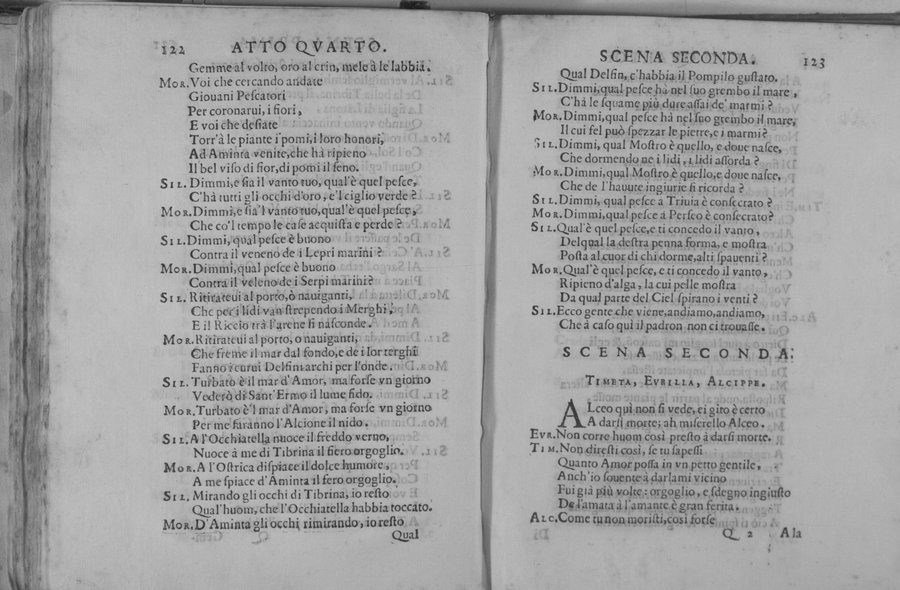 122 ATTO QVARTO.
Gemme al volto, oro al crin, mele à le labbia.
MOR. Voi che cercando andate
Giouani Pescatori
Per coronarui, i fiori,
E voi che desiate
Torr'à le piante i pomi, i loro honori,
Ad Aminta venite, che hà ripieno
Il bel viso di fior, di pomi il seno.
SIL. Dimmi, e sia il vanto tuo, qual'è quel pesce,
C'hà tutti gli occhi d'oro, e'l ciglio verde?
MOR. Dimmi, e sia'l vanto tuo, qual'è quel pesce,
Che co'l tempo le case acquista e perde?
SIL. Dimmi, qual pesce è buono
Contra il veneno de i Lepri marini?
MOR. Dimmi, qual pesce è buono
Contra il veleno de i Serpi marini?
SIL. Ritirateui al porto, ò nauiganti,
Che per i lidi van strependo i Merghi,
E il Riccio trà l'arene si nasconde.
MOR. Ritirateui al porto, o nauiganti,
Che freme il mar dal fondo, e de i lor terghi
Fanno i curui Delfini archi per l'onde.
SIL. Turbato è il mar d'Amor, ma forse vn giorno
Vederò di Sant'Ermo il lume fido.
MOR. Turbato è'l mar d'Amor, ma forse vn giorno
Per me faranno l'Alcione il nido.
SIL. A l'Occhiatella nuoce il freddo verno,
Nuoce à me di Tibrina il fiero orgoglio.
MOR. A l'Ostrica dispiace il dolce humore,
A me spiace d'Aminta il fero orgoglio.
SIL. Mirando gli occhi di Tibrina, io resto
Qual'huom, che l'Occhiatella habbia toccato.
MOR. D'Aminta gli occhi rimirando, io resto
Qual
SCENA SECONDA. 123
Qual Delfin, c'habbia il Pompilo gustato.
SIL. Dimmi, qual pesce hà nel suo grembo il mare,
C'hà le squame più dure assai de' marmi?
MOR. Dimmi, qual pesce hà nel suo grembo il mare,
Il cui fel può spezzar le pietre, e i marmi?
SIL. Dimmi, qual Mostro è quello, e doue nasce,
Che dormendo ne i lidi, i lidi assorda?
MOR. Dimmi, qual Mostro è quello, e doue nasce,
Che de l'hauute ingiurie si ricorda?
SIL. Dimmi, qual pesce a Triuia è consecrato?
MOR. Dimmi, qual pesce á Perseo è consecrato?
SIL. Qual'è quel pesce, e ti concedo il vanto,
Del qual la destra penna forma, e mostra
Posta al cuor di chi dorme, alti spauenti?
MOR. Qual'è quel pesce, e ti concedo il vanto,
Ripieno d'alga, la cui pelle mostra
Da qual parte del Ciel spirano i venti?
SIL. Ecco gente che viene, andiamo, andiamo,
Che à caso quì il padron non ci trouasse.
SCENA SECONDA.
TIMETA, EVRILLA, ALCIPPE.
ALceo quì non si vede, ei giro è certo
A darsi morte; ah misero Alceo.
EVR. Non corre huom così presto à darsi morte.
TIM. Non diresti così, se tu sapessi
Quanto Amor possa in vn petto gentile,
Anch'io souente à darlami vicino
Fui già più volte: orgoglio, e sdegno ingiusto
De l'amata à l'amante è gran ferita.
ALC. Come tu non moristi, così forse
Q 2 A la